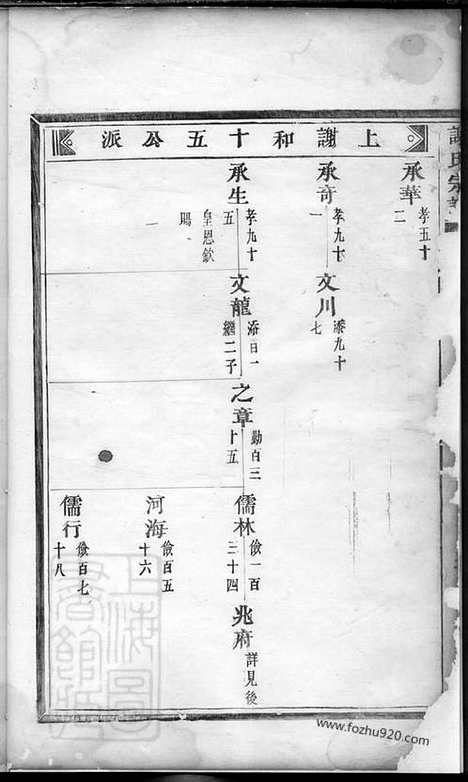 上謝和十五公派
承華 孝五十二
承奇 孝九十一
文川 添九十七
承生 孝九十五 皇恩欽賜一
文龍 添百一 繼二子
之章 勤百三十五
儒林 儉一百三十四
兆府 詳見後
河海 儉百五十六
儒行 儉百七十八
上海圖書館藏
www.fozhu920.com